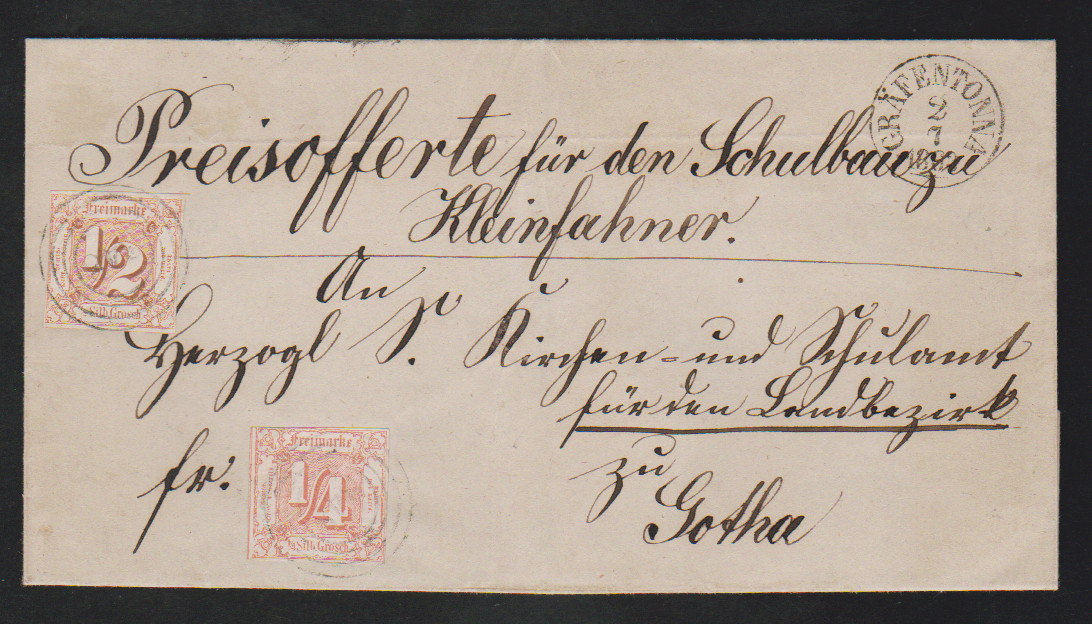 Preisofferte für den Schulbau zu
Kleinfahner.
An
Herzogl S. Kirchen- und Schulamt
für den Landbezirk
zu
Gotha
fr.
GRÄFENTONNA
2
1
Freimarke
1/2
Silb. Grosch
Freimarke
1/4
Silb. Grosch